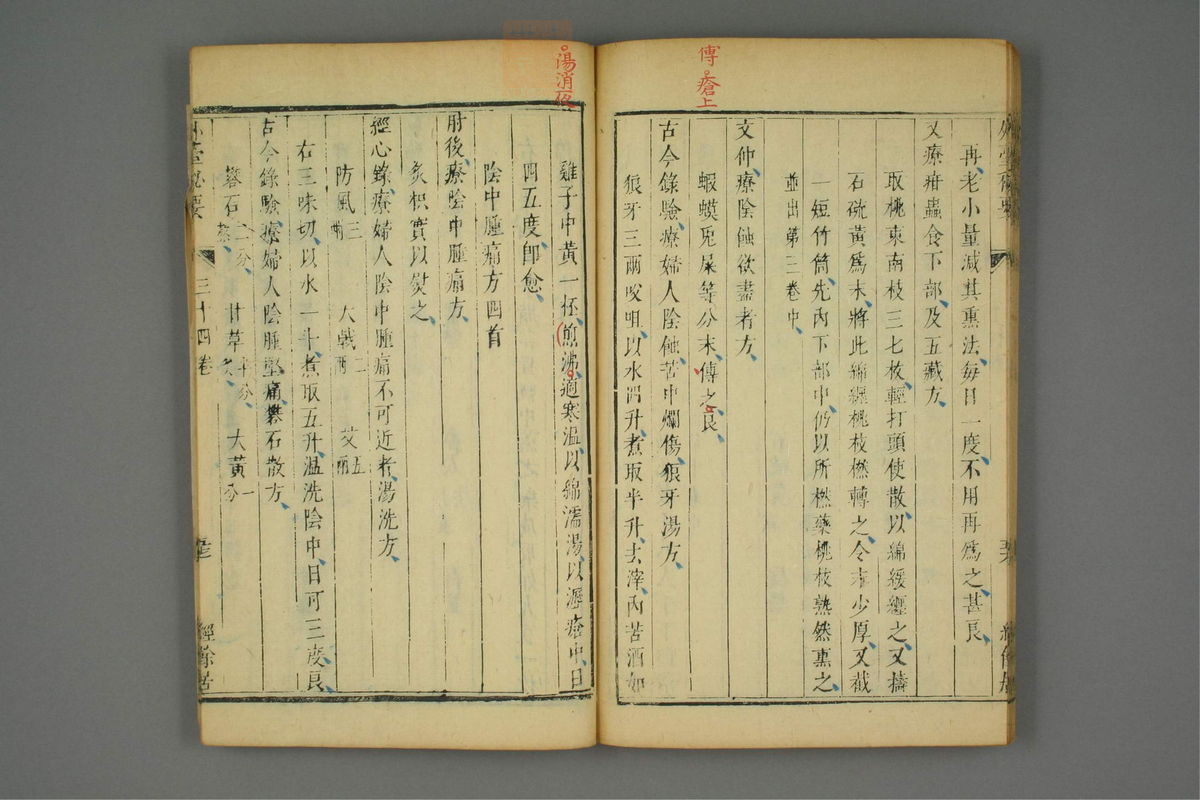 傅瘡上
再老小量減其熏法每日一度不用再爲之甚良
又療疳蟲食下部及五藏方
取桃東南枝三七枚輕打頭使散以綿緩纏之又擣
石硫黃爲末將此綿纏桃枝撚轉之令末少厚又截
一短竹筒先內下部中仍以所撚藥桃枝熟然熏之
並出第三卷中
文仲療陰蝕欲盡者方
蝦蟆兎屎等分末傅之良
古今錄驗療婦人陰蝕苦中爛傷狼牙湯方
狼牙三兩㕮咀以水四升煮取半升去滓內苦酒如
湯消
雞子中黃一杯煎沸適寒温以綿濡湯以瀝瘡中日
四五度卽愈
陰中腫痛方四首
肘後療陰中腫痛方
炙枳實以熨之
經心錄療婦人陰中腫痛不可近者湯洗方
防風三兩 大戟二兩 艾五兩
右三味切以水一斗煮取五升温洗陰中日可三度良
古今錄驗療婦人陰腫堅痛礬石散方
礬石二分熬 甘草十分炙 大黃一分
三十四卷